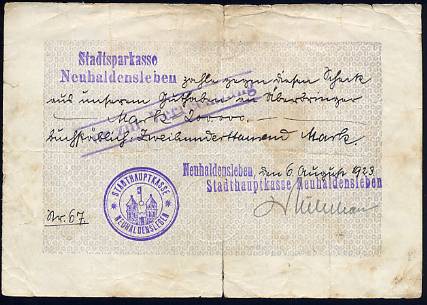 Stadtsparkasse
Neuhaldensleben zahle gegen diesen Scheck
aus unserem Guthaben an Überbringer
Mark 200000.
buchstäblich Zweihunderttausend Mark.
Nur zur Verrechnung
Neuhaldensleben, den 6. August 1923
Stadthauptkasse Neuhaldensleben
STADTHAUPTKASSE
NEUHALDENSLEBEN
Nr. 67